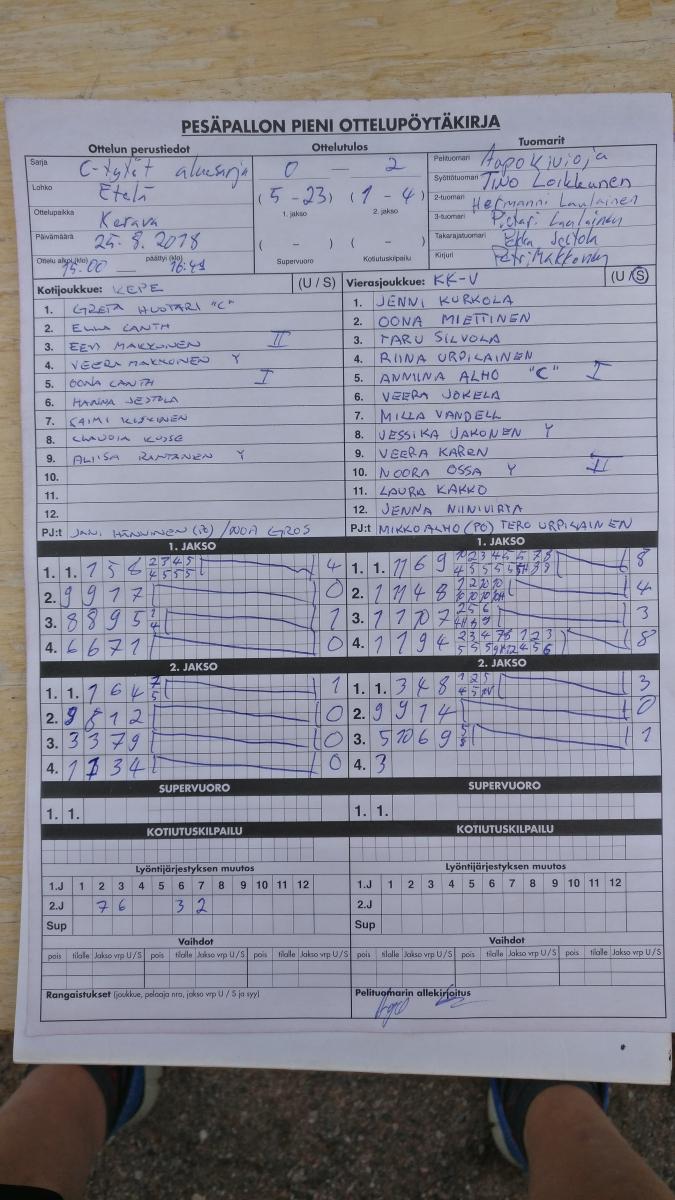 PESÄPALLON PIENI OTTELUPÖYTÄKIRJA
Ottelun perustiedot
Ottelutulos
Tuomarit
Sarja C-tytöt aluesarja
Lohko Etelä
Ottelupaikka Kerava
Päivämäärä 25.8.2018
Ottelu alkoi (klo) 15.00 päättyi (klo) 16:41
0 — 2
(5-23) (1-4)
1. jakso 2. jakso
( - ) ( - )
Supervuoro Kotiutuskilpailu
Pelituomari Aapo Kivioja
Syöttötuomari Tino Loikkanen
2-tuomari Hermanni Laulainen
3-tuomari Pietari Laulainen
Takarajatuomari
Kirjuri Petri Makkonen
Kotijoukkue: KEPE (U / S)
1. GRETA HUOTARI "C"
2. ELLA CANTH
3. EEVI MAKKONEN II
4. VEERA MAKKONEN Y
5. OONA CANTH I
6. HANNA
7. SAIMI
8. CLAUDIA
9. ALIISA RANTANEN Y
10.
11.
12.
PJ:t JANI HÄNNINEN (PO) / NOA GROS
Vierasjoukkue: KK-V (U / S)
1. JENNI KURKOLA
2. OONA MIETTINEN
3. TARU SILVOLA
4. RIINA URPILAINEN
5. ANNIINA ALHO "C" I
6. VEERA JOKELA
7. MILLA VANDELL
8. JESSIKA JAKONEN Y
9. VEERA KAREN
10. NOORA OSSA Y II
11. LAURA KAKKO
12. JENNA NIINIVIRTA
PJ:t MIKKO ALHO (PO) TERO URPILAINEN
1. JAKSO
1. 1. 1 5 8 4
2. 9 9 1 7 0
3. 8 8 9 5 1
4. 6 6 7 1 0
2. JAKSO
1. 1. 1 6 4 1
2. 9 8 1 2 0
3. 3 3 7 9 0
4. 1 1 3 4 0
SUPERVUORO
1. 1.
KOTIUTUSKILPAILU
Lyöntijärjestyksen muutos
1.J 1 2 3 4 5 6 7 8 9 10 11 12
2.J 7 6 3 2
Sup
Vaihdot
pois tilalle Jakso vrp U / S pois tilalle Jakso vrp U / S pois tilalle Jakso vrp U / S
Rangaistukset (joukkue, pelaaja nro, jakso vrp U / S ja syy)
1. JAKSO
1. 1. 11 6 9 8
2. 1 11 4 8 4
3. 1 11 0 7 3
4. 1 1 9 4 8
2. JAKSO
1. 1. 3 4 8 3
2. 9 9 1 4 0
3. 5 10 6 9 1
4. 3
SUPERVUORO
1. 1.
KOTIUTUSKILPAILU
Lyöntijärjestyksen muutos
1.J 1 2 3 4 5 6 7 8 9 10 11 12
2.J
Sup
Vaihdot
pois tilalle Jakso vrp U / S pois tilalle Jakso vrp U / S pois tilalle Jakso vrp U / S
Pelituomarin allekirjoitus